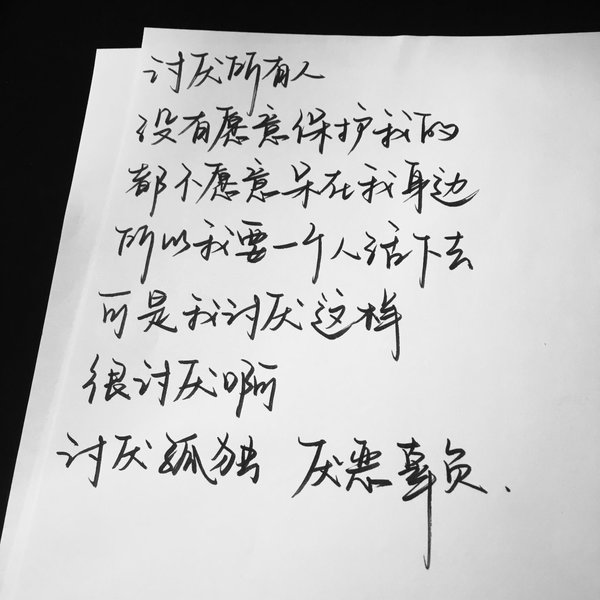 讨厌所有人
没有愿意保护我的
都不愿意呆在我身边
所以我要一个人活下去
可是我讨厌这样
很讨厌啊
讨厌孤独 厌恶辜负.